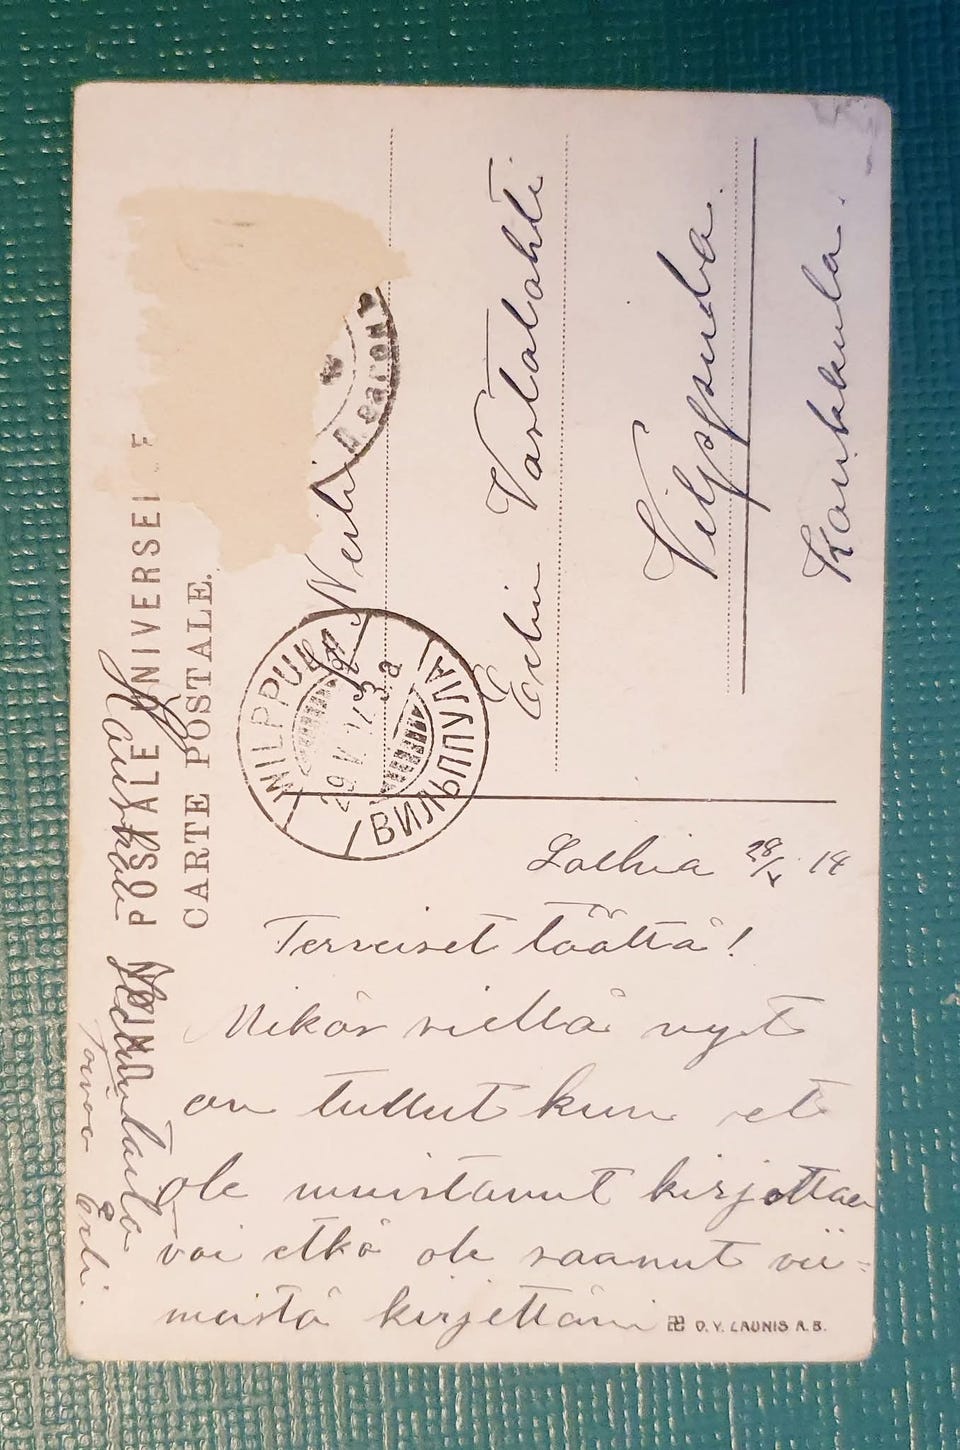 UNION POSTALE UNIVERSELLE
CARTE POSTALE.
Neiti
Eelin Vartalahti
Vilppula.
Kautukula.
WILPPULA
29.V.14
3 a
ВИЛЬППУЛА
Laihia 28/V 14
Terveiset täältä!
Mikäs siellä nyt
on tullut kun et
ole muistanut kirjottaa
vai etkö ole saanut vii=
meistä kirjettäni
toivoo Eeli.
O.Y. LAUNIS A.B.